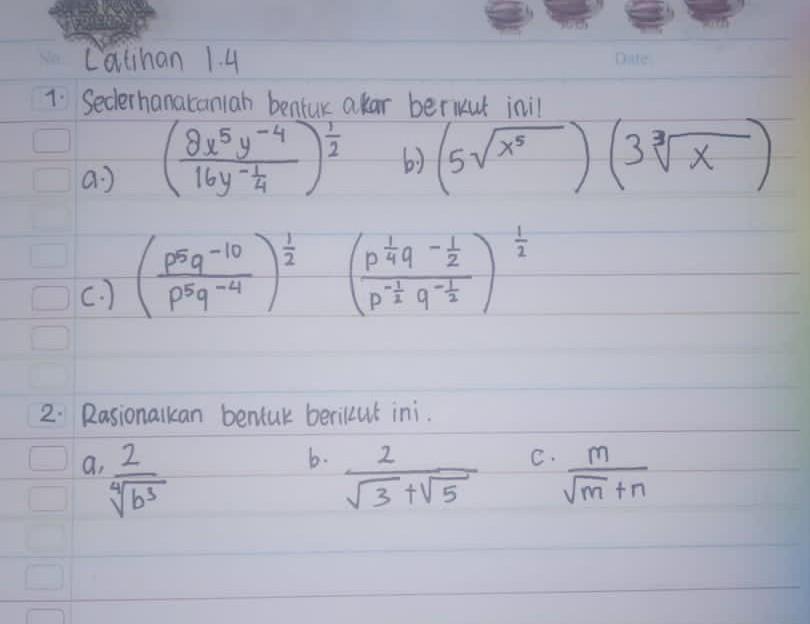 No. Latihan 1.4 Date:
1. Sederhanakanlah bentuk akar berikut ini!
a.) (8x⁵y⁻⁴ / 16y^(-1/4))^(1/2) b.) (5√x⁵) (3∛x)
c.) (p⁵q⁻¹⁰ / p⁵q⁻⁴)^(1/2) (p^(1/4) q^(-1/2) / p^(-1/2) q^(-1/2))^(1/2)
2. Rasionalkan bentuk berikut ini.
a. 2/∜b³ b. 2/(√3+√5) c. m/(√m+n)